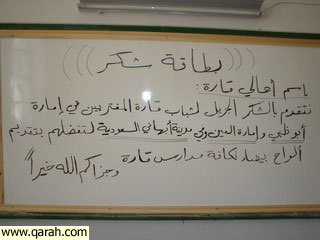 (((بطاقة شكر)))
باسم أهالي قارة :
نتقدم بالشكر الجزيل لشباب قارة المغتربين في إمارة
أبوظبي وإمارة العين وفي مدينة أبها في السعودية لتفضلهم بتقديم
ألواح بيضاء لكافة مدارس قارة
وجزاكم الله خيراً
www.qarah.com